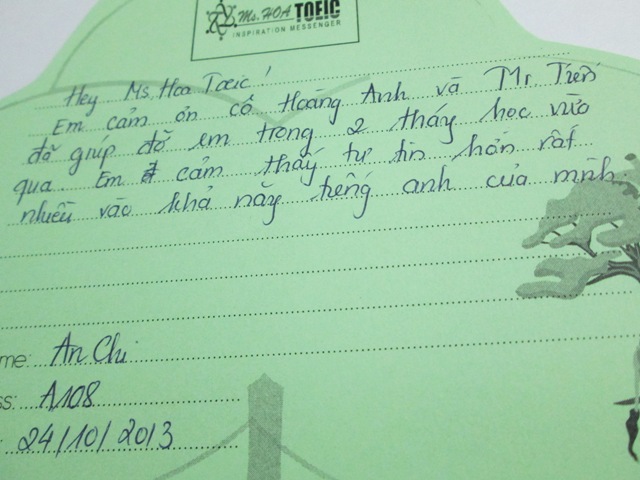 Ms. HOA TOEIC
INSPIRATION MESSENGER
Hey Ms Hoa Toeic!
Em cảm ơn cô Hoàng Anh và Mr. Tiến
đã giúp đỡ em trong 2 tháy học vừa
qua. Em cảm thấy tự tin hơn rất
nhiều vào khả năg tiếng anh của mình.
me: An Chi
ss: A108
: 24/10/2013